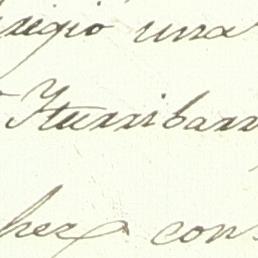 regio una
Yturribarr
her con